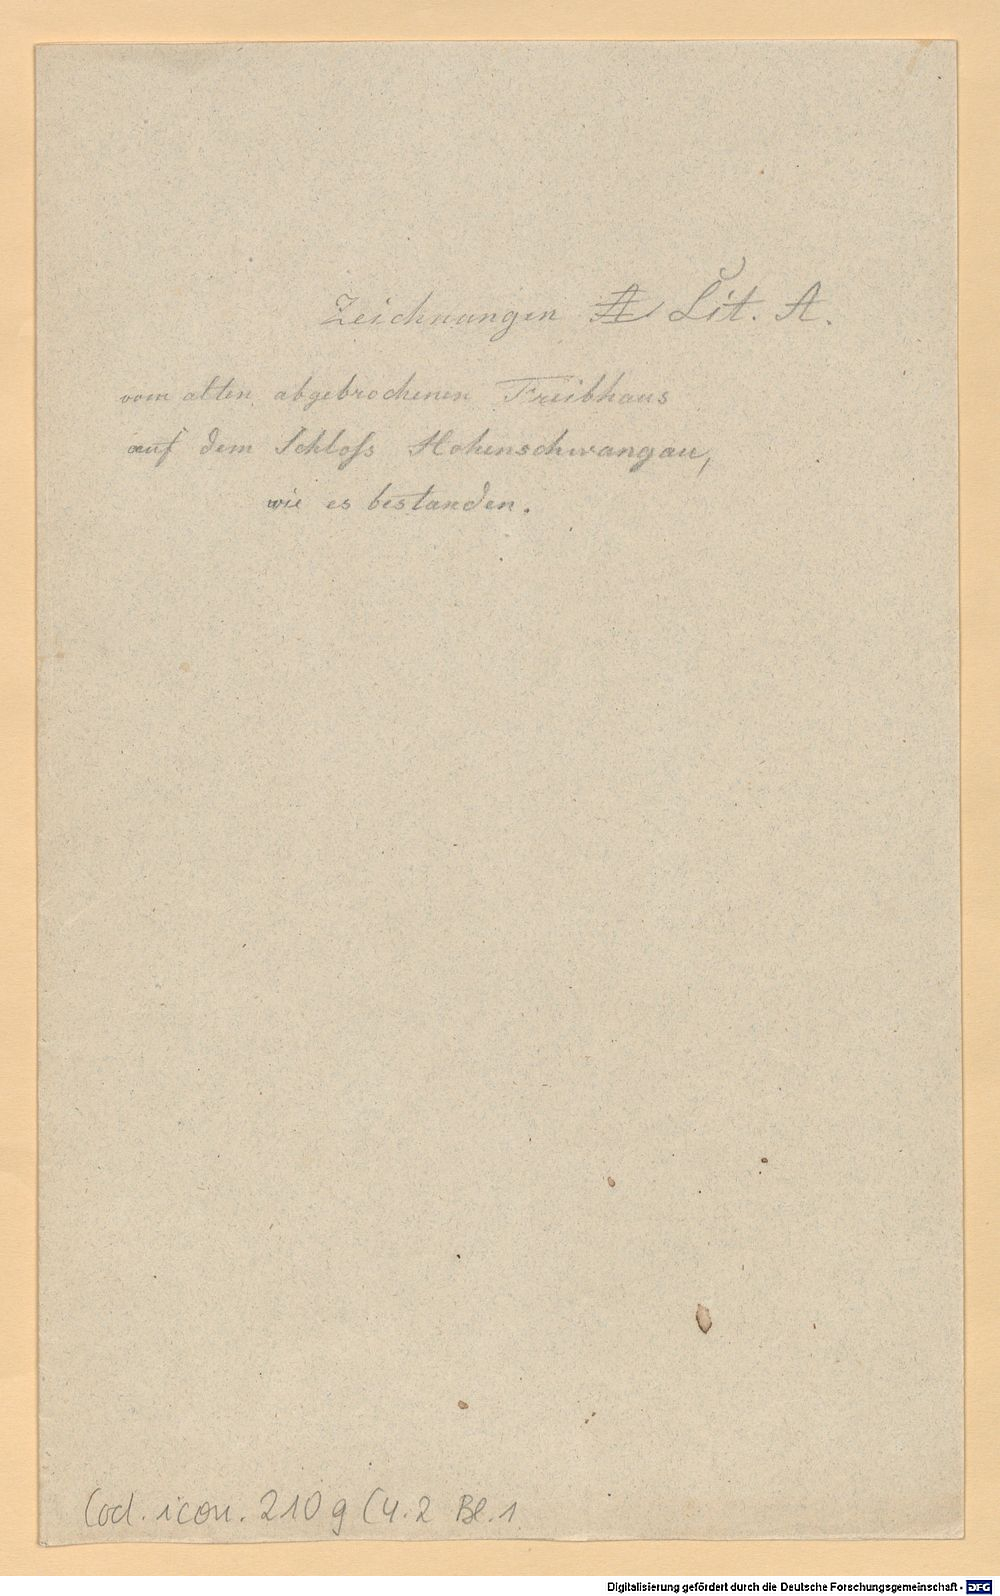 Zeichnungen A Lit. A.
vom alten abgebrochenen Treibhaus
auf dem Schloss Hohenschwangau,
wie es bestanden.
Cod. icon. 210 g (4.2 Bl. 1
Digitalisierung gefördert durch die Deutsche Forschungsgemeinschaft - DFG